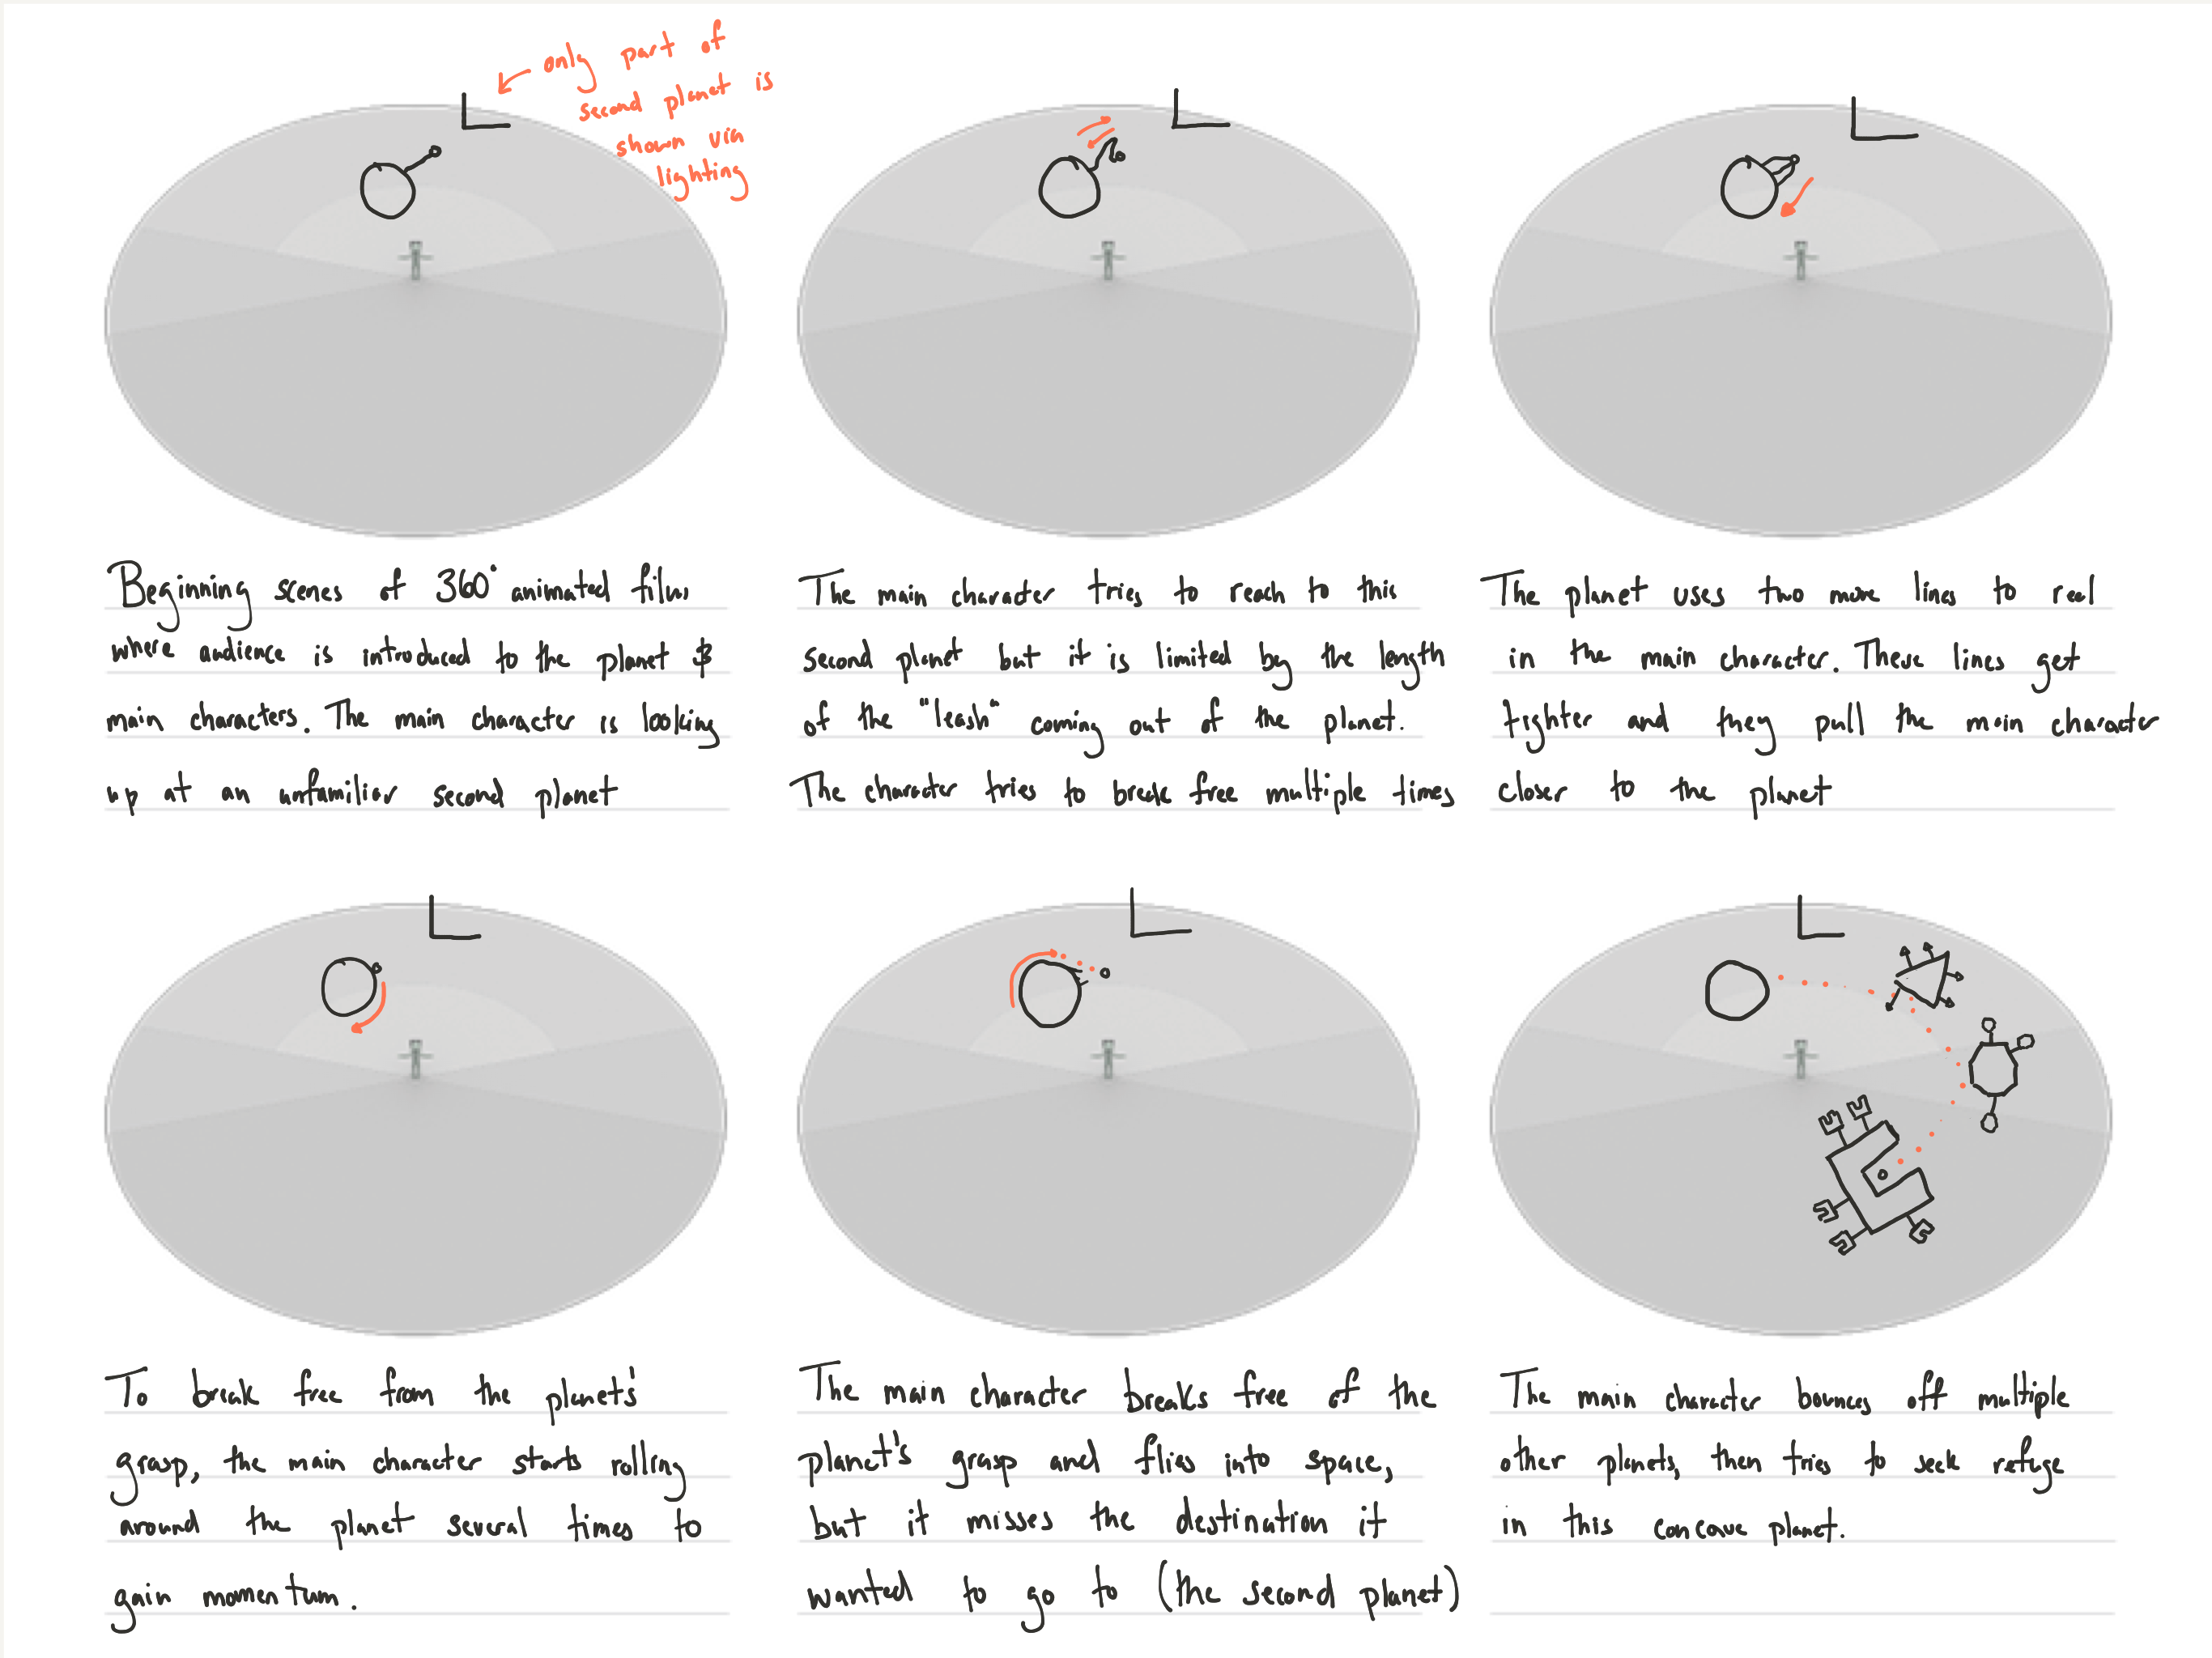 only part of
second planet is
shown via
lighting
Beginning scenes of 360° animated film
where audience is introduced to the planet &
main characters. The main character is looking
up at an unfamiliar second planet
The main character tries to reach to this
second planet but it is limited by the length
of the "leash" coming out of the planet.
The character tries to break free multiple times
The planet uses two more lines to reel
in the main character. These lines get
tighter and they pull the main character
closer to the planet
To break free from the planets'
grasp, the main character starts rolling
around the planet several times to
gain momentum.
The main character breaks free of the
planet's grasp and flies into space,
but it misses the destination it
wanted to go to (the second planet)
The main character bounces off multiple
other planets, then tries to seek refuge
in this concave planet.